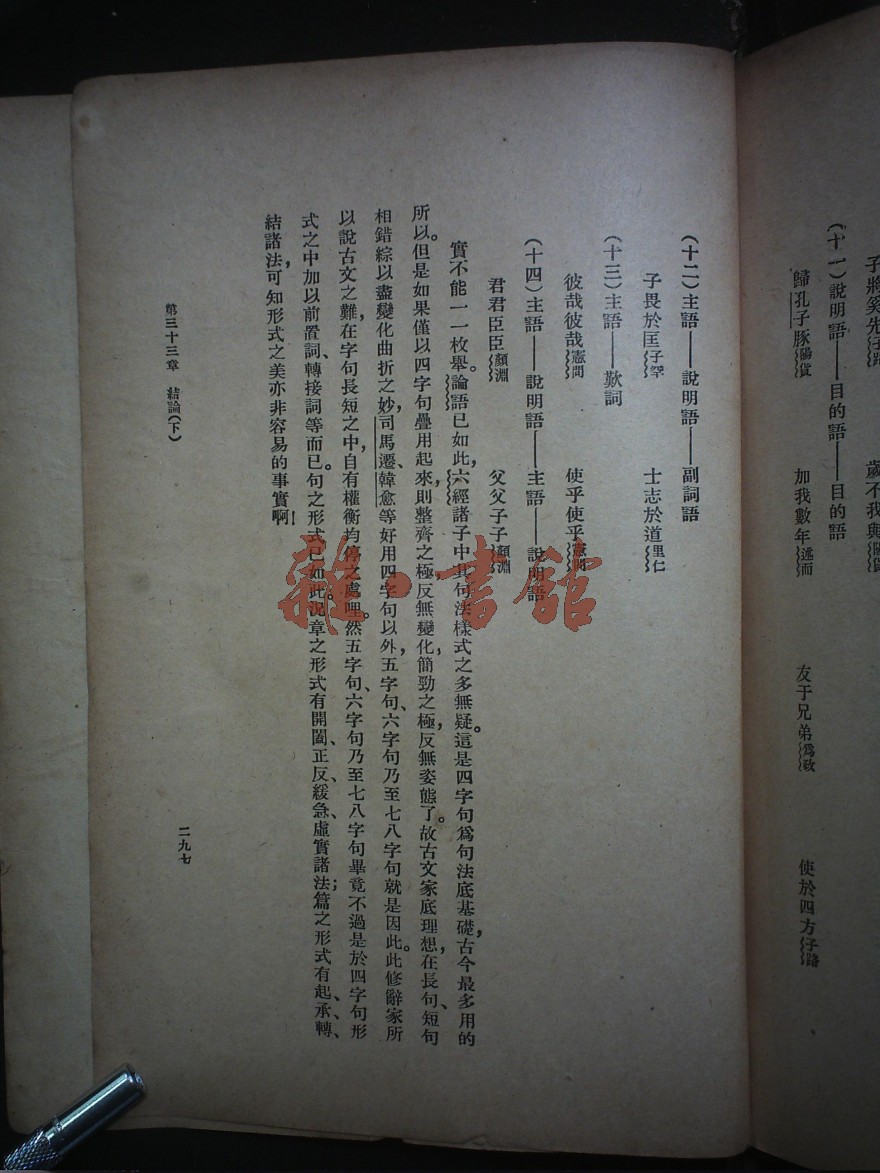 子將奚先子路 歲不我與陽貨
(十一)說明語——目的語——目的語
歸孔子豚陽貨 加我數年述而 友于兄弟爲政 使於四方子路
(十二)主語——說明語——副詞語
子畏於匡子罕 士志於道里仁
(十三)主語——歎詞
彼哉彼哉憲問 使乎使乎憲問
(十四)主語——說明語——主語——說明語
君君臣臣顏淵 父父子子顏淵
實不能一一枚舉。論語已如此,六經諸子中其句法樣式之多無疑。這是四字句爲句法底基礎,古今最多用的
所以。但是如果僅以四字句疊用起來,則整齊之極反無變化,簡勁之極,反無姿態了。故古文家底理想,在長句、短句
相錯綜以盡變化曲折之妙,司馬遷、韓愈等好用四字句以外,五字句、六字句乃至七八字句就是因此。此修辭家所
以說古文之難,在字句長短之中,自有權衡均停之處哩。然五字句、六字句乃至七八字句畢竟不過是於四字句形
式之中加以前置詞、轉接詞等而已。句之形式已如此。況章之形式有開闔、正反、緩急、虛實諸法;篇之形式有起、承、轉、
結諸法,可知形式之美亦非容易的事實啊!
第三十三章 結論(下)
二九七
雜·書館